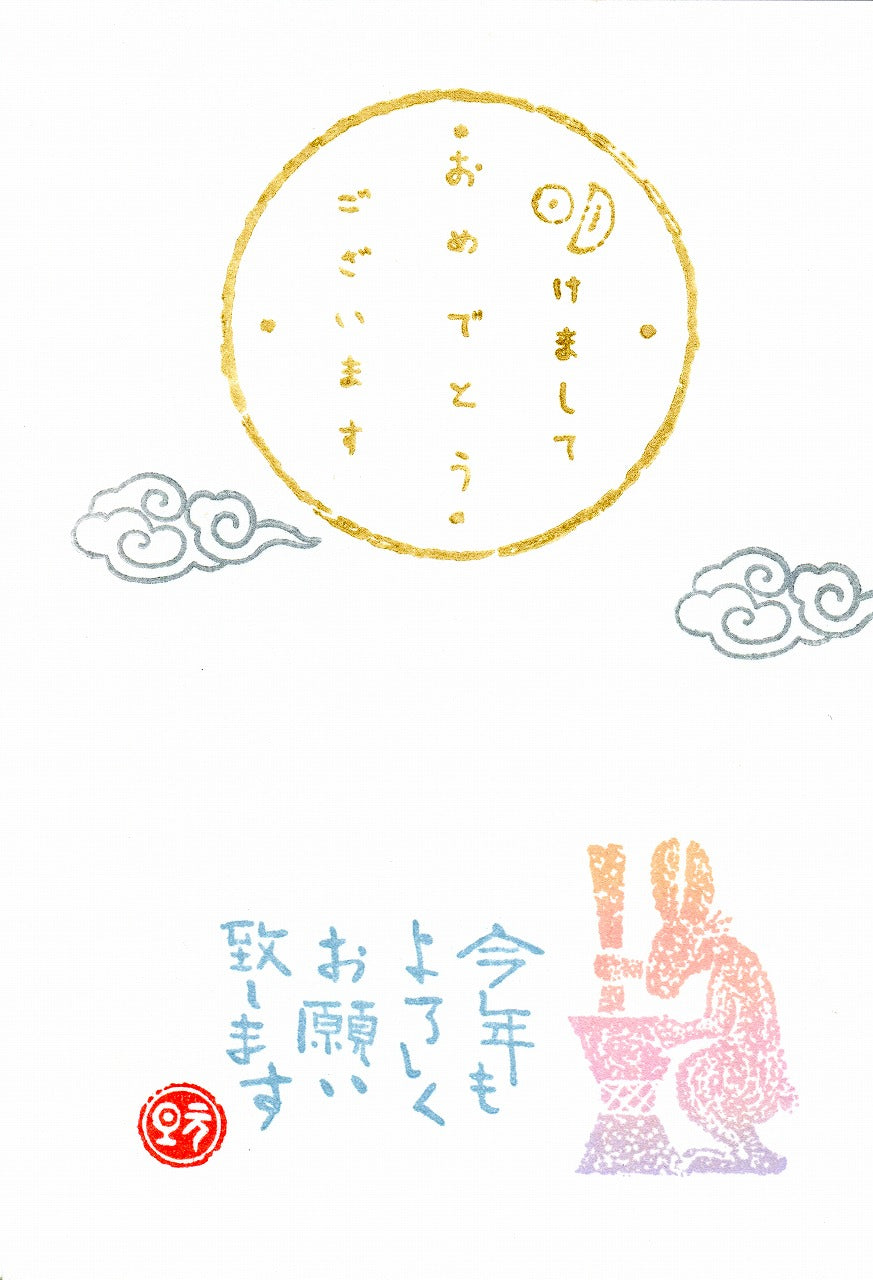 明けまして
おめでとう
ございます
今年も
よろしく
お願い
致します